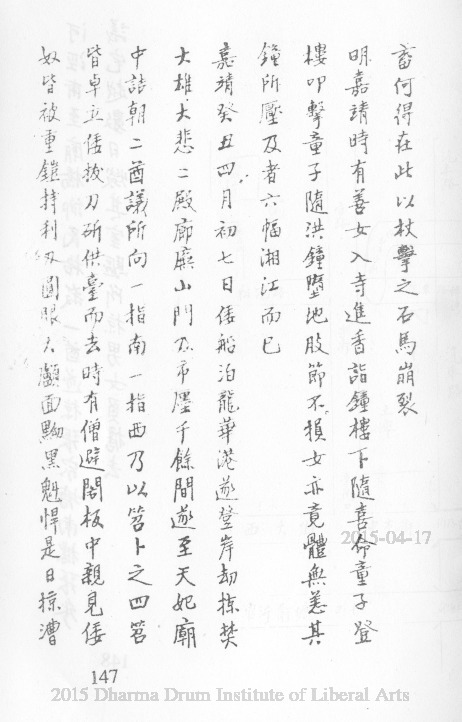 畜何得在此以杖擊之石馬崩裂
明嘉靖時有善女入寺進香詣鐘樓下隨喜命童子登
樓叩擊童子隨洪鐘墮地肢節不損女亦竟體無恙其
鐘所壓及者六幅湘江而已
嘉靖癸丑四月初七日倭船泊龍華港遂登岸劫掠焚
大雄大悲二殿廊廡山門及市廛千餘間遂至天妃廟
中詰朝二酋議所向一指南一指西乃以筶卜之四筶
皆卓立倭拔刀斫供臺而去時有僧避閣板中親見倭
奴皆被重鎧持利刃圓眼大顱面黝黑魁悍是日掠漕
147
2015-04-17
2015 Dharma Drum Institute of Liberal Arts